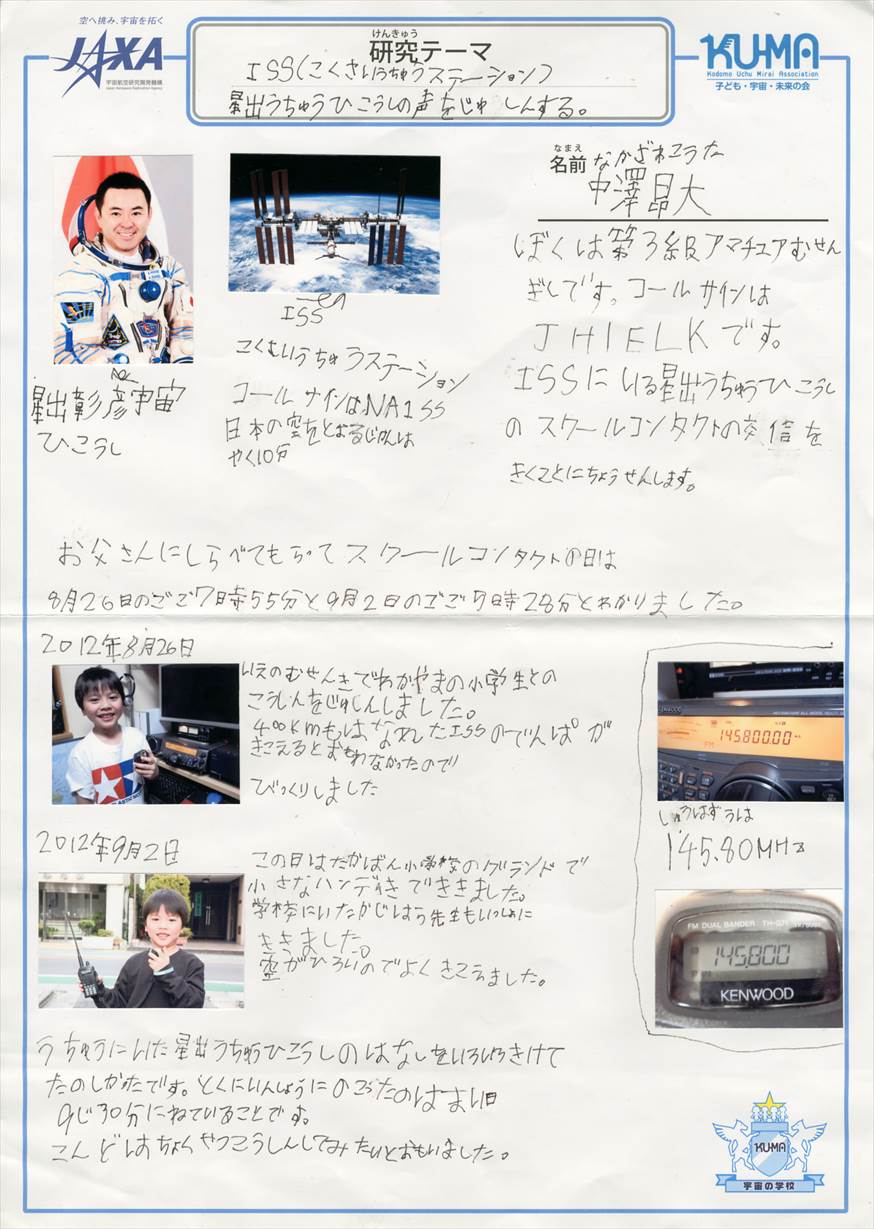 空へ挑み、宇宙を拓く
JAXA
宇宙航空研究開発機構
Japan Aerospace Exploration Agency
けんきゅう
研究テーマ
ISS(こくさいうちゅうステーション)
星出うちゅうひこうしの声をじゅしんする。
KU-MA
Kodomo Uchu Mirai Association
子ども・宇宙・未来の会
なまえ
名前
なかざわこうた
中澤昂大
ぼくは第3級アマチュアむせん
ぎしです。コールサインは
JH1ELKです。
ISSにいる星出うちゅうひこうし
のスクールコンタクトの交信を
きくことにちょうせんします。
星出彰彦宇宙
ひこうし
ISS
こくさいうちゅうステーション
コールサインはNA1SS
日本の空をとおるじかんは
やく10分
お父さんにしらべてもらってスクールコンタクトの日は
8月26日のごご7時55分と9月2日のごご7時28分とわかりました。
2012年8月26日
いえのむせんきでわかやまの小学生との
こうしんをじゅしんしました。
400kmもはなれたISSのでんぱが
きこえるとおもわなかったので
びっくりしました
KENWOOD
FM 145.800.00
しゅうはすうは
145.80MHz
2012年9月2日
この日はたかばん小学校のグランドで
小さなハンディきできました。
学校にいたかじはら先生もいっしょに
ききました。
空がひろいのでよくきこえました。
FM DUAL BANDER TH-G71
145.800
KENWOOD
うちゅうにいた星出うちゅうひこうしのはなしをいろいろきけて
たのしかったです。とくにいんしょうにのこったのはまい日
9じ30分にねていることです。
こんどはちょくせつこうしんしてみたいとおもいました。
KU-MA
宇宙の学校